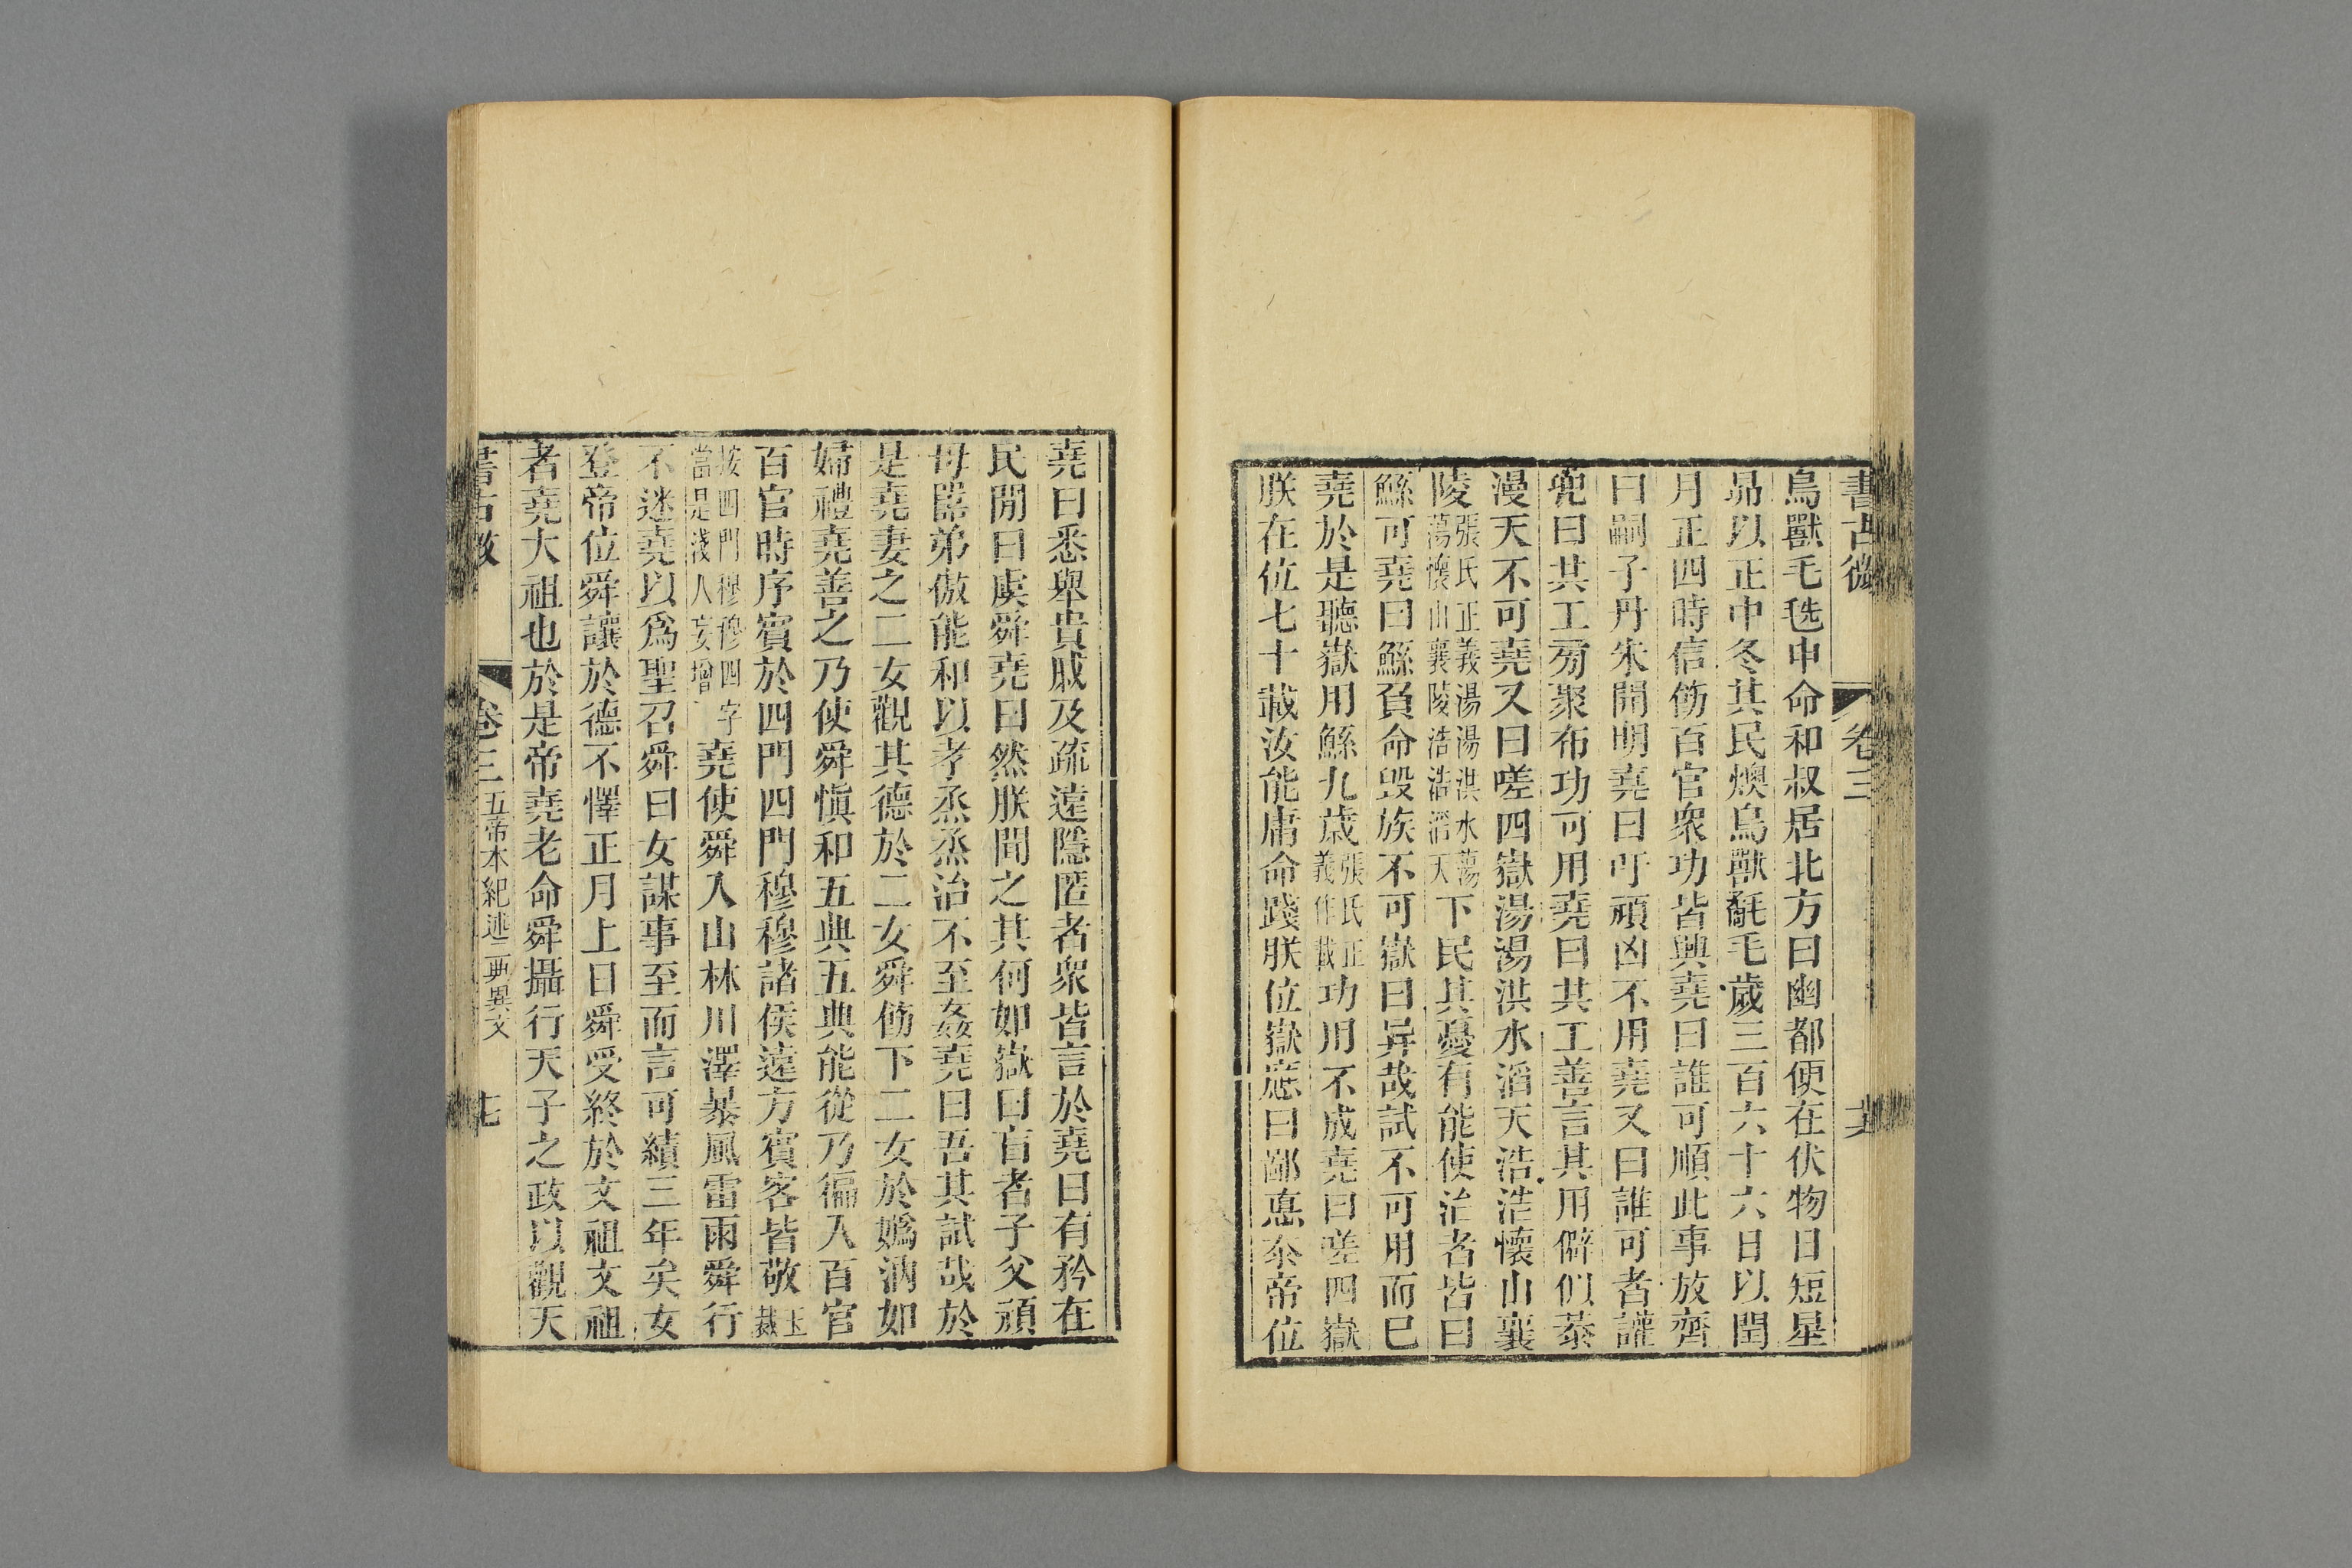 書古微 卷三
鳥獸毛毨申命和叔居北方曰幽都便在伏物日短星
昴以正中冬其民燠鳥獸氄毛歲三百六十六日以閏
月正四時信飭百官衆功皆興堯曰誰可順此事放齊
曰嗣子丹朱開明堯曰吁頑凶不用堯又曰誰可者讙
兜曰共工旁聚布功可用堯曰共工善言其用僻似恭
漫天不可堯又曰嗟四嶽湯湯洪水滔天浩浩懷山襄
陵張氏正義湯湯洪水蕩蕩懷山襄陵浩浩滔天下民其憂有能使治者皆曰
鯀可堯曰鯀負命毀族不可嶽曰异哉試不可用而已
堯於是聽嶽用鯀九歲張氏正義作載功用不成堯曰嗟四嶽
朕在位七十載汝能庸命踐朕位嶽應曰鄙悳忝帝位
堯曰悉舉貴戚及疏遠隱匿者衆皆言於堯曰有矜在
民閒曰虞舜堯曰然朕聞之其何如嶽曰盲者子父頑
母嚚弟傲能和以孝烝烝治不至姦堯曰吾其試哉於
是堯妻之二女觀其德於二女舜飭下二女於嬀汭如
婦禮堯善之乃使舜愼和五典五典能從乃徧入百官
百官時序賓於四門四門穆穆諸侯遠方賓客皆敬玉裁
按四門穆穆四字當是淺人妄增堯使舜入山林川澤暴風雷雨舜行
不迷堯以爲聖召舜曰女謀事至而言可績三年矣女
登帝位舜讓於德不懌正月上日舜受終於文祖文祖
者堯大祖也於是帝堯老命舜攝行天子之政以觀天
書古微 卷三 五帝本紀述二典異文